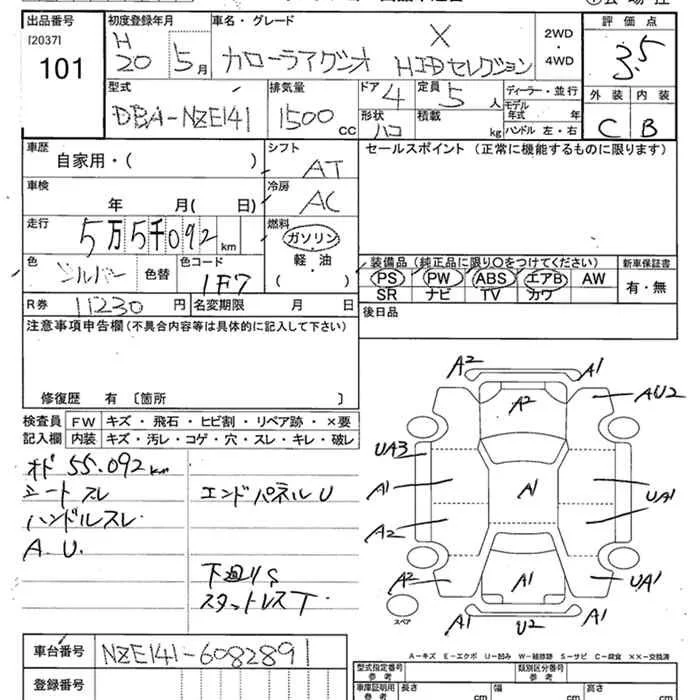 出品番号 [2037] 101
初度登録年月 H 20 5月
車名・グレード カローラアクシオ X HIDセレクション
2WD・4WD
評価点 3.5
外装 内装
C B
型式 DBA-NZE141
排気量 1500 cc
ドア 4
定員 5 人
形状 ハコ
積載 kg
ディーラー・並行
モデル年式 年
ハンドル 左・右
車歴 自家用・( )
シフト AT
セールスポイント (正常に機能するものに限ります)
車検 年 月( 日)
冷房 AC
走行 5万5千092 km
燃料 ガソリン 軽・油 ( )
色 シルバー 色替
色コード 1F7
装備品 (純正品に限り○をつけてください)
PS PW ABS エアB AW
SR ナビ TV カワ
新車保証書 有・無
R券 11230 円
名変期限 月 日
後日品
注意事項申告欄 (不具合内容等は具体的に記入して下さい)
修復歴 有 〔箇所 〕
検査員記入欄
FW キズ・飛石・ヒビ割・リペア跡・×要
内装 キズ・汚レ・コゲ・穴・スレ・キレ・破レ
オド 55.092km
シートスレ
ハンドルスレ
A.U.
エンドパネルU
下廻りS
スタットレスT
A2 A1
A2 AU2
UA3
A1 A1 UA1
A2
A2 A1 UA1
A1 U2 A1
スペア
A-キズ E-エクボ U-凹ミ W-補修跡 S-サビ C-腐食 ××-交換済
車台番号 NZE141-6082891
登録番号
型式指定番号 参考
類別区分番号 参考
車庫証明用 参考 長さ cm 幅 cm 高さ cm